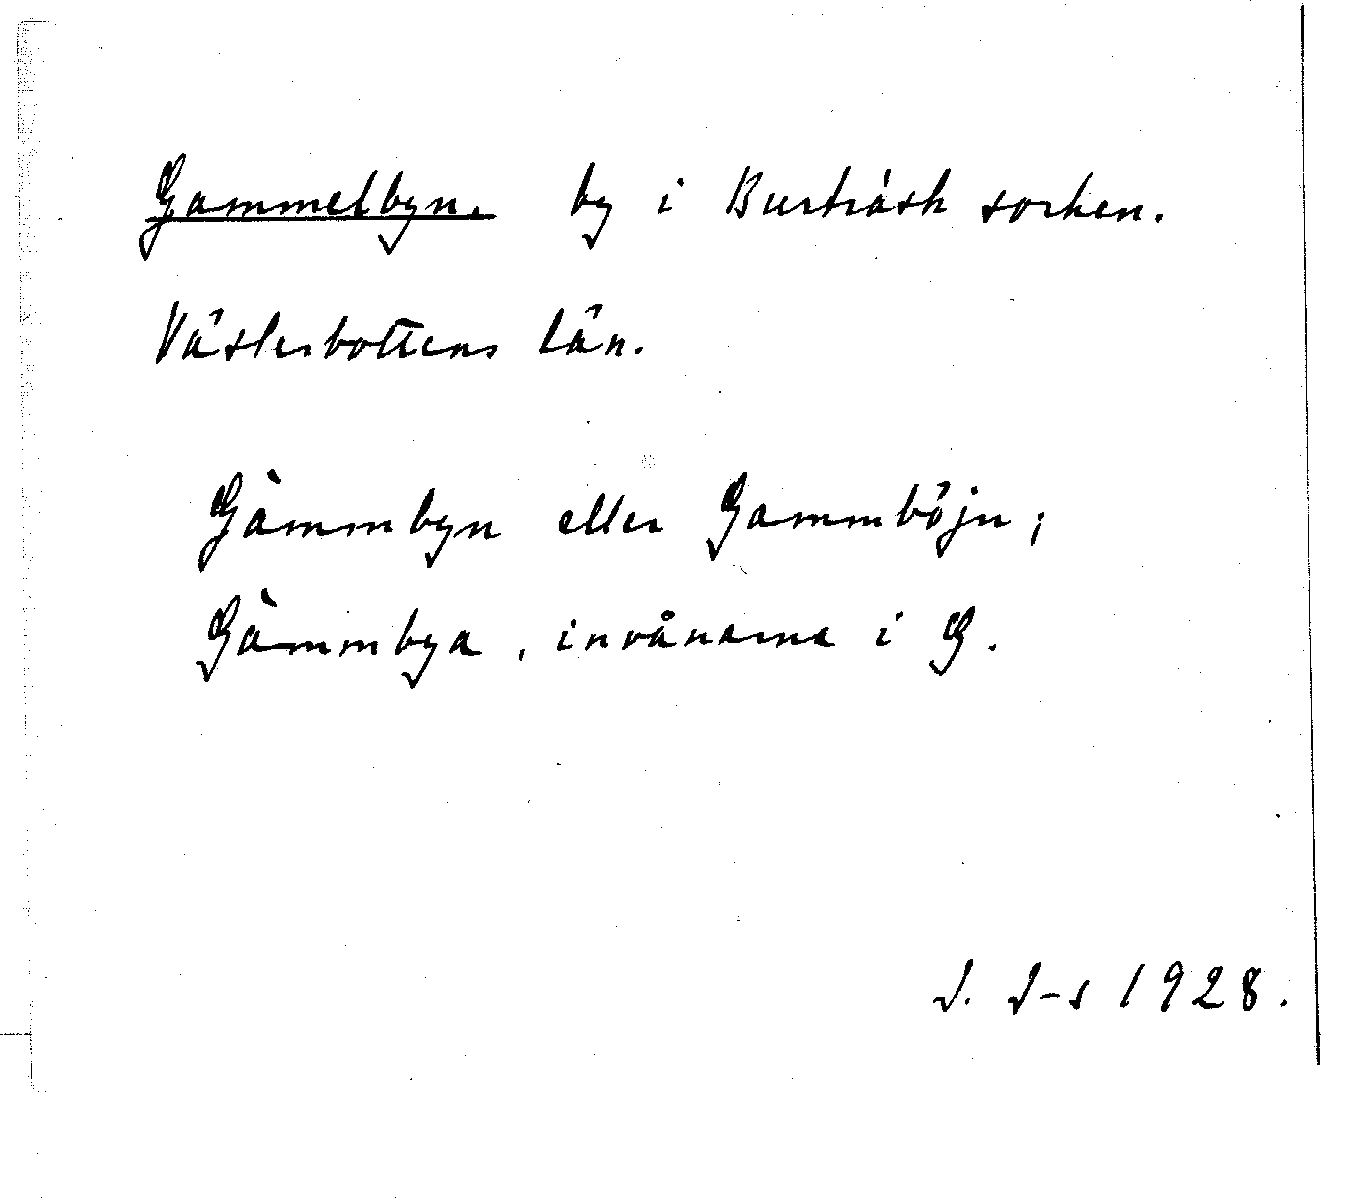 Gammelbyn. by i Burträsk socken.
Västerbottens län.
Gàmmbyn eller Gammböjn;
Gàmmbya, invånarna i G.
J. J-s 1928.